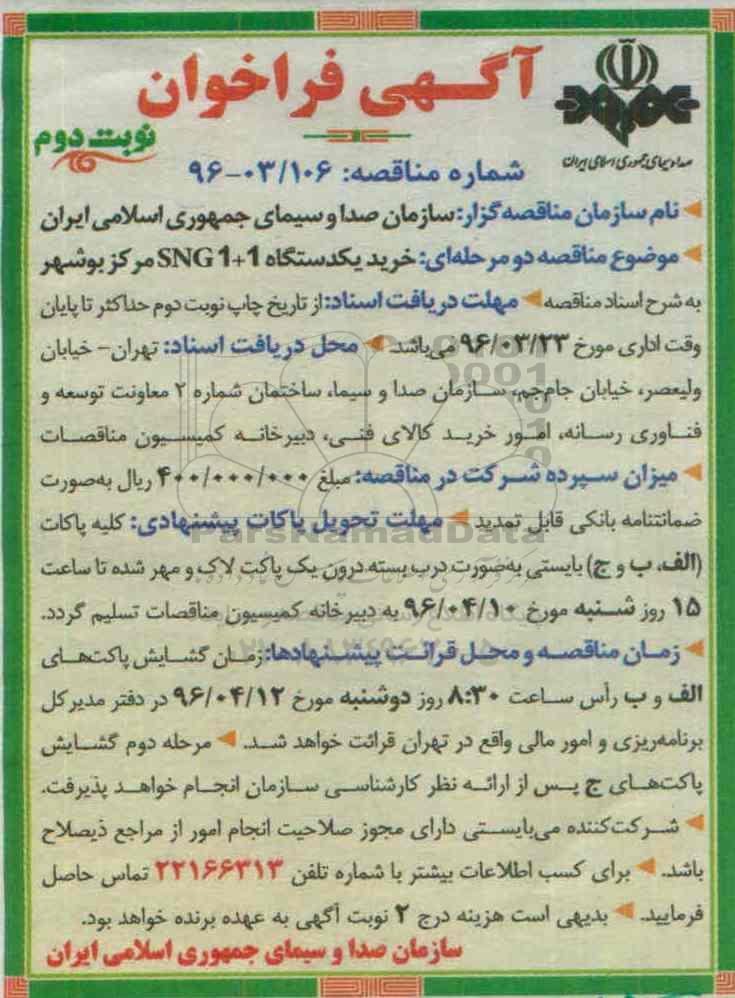 آگهی فراخوان
نوبت دوم
صدا و سیمای جمهوری اسلامی ایران
شماره مناقصه: ۹۶-۰۳/۱۰۶
نام سازمان مناقصه‌گزار: سازمان صدا و سیمای جمهوری اسلامی ایران
موضوع مناقصه دو مرحله‌ای: خرید یکدستگاه SNG 1+1 مرکز بوشهر
به شرح اسناد مناقصه مهلت دریافت اسناد: از تاریخ چاپ نوبت دوم حداکثر تا پایان
وقت اداری مورخ ۹۶/۰۳/۲۳ می‌باشد. محل دریافت اسناد: تهران- خیابان
ولیعصر، خیابان جام‌جم، سازمان صدا و سیما، ساختمان شماره ۲ معاونت توسعه و
فناوری رسانه، امور خرید کالای فنی، دبیرخانه کمیسیون مناقصات
میزان سپرده شرکت در مناقصه: مبلغ ۴۰۰/۰۰۰/۰۰۰ ریال به‌صورت
ضمانتنامه بانکی قابل تمدید مهلت تحویل پاکات پیشنهادی: کلیه پاکات
(الف، ب و ج) بایستی به‌صورت درب بسته درون یک پاکت لاک و مهر شده تا ساعت
۱۵ روز شنبه مورخ ۹۶/۰۴/۱۰ به دبیرخانه کمیسیون مناقصات تسلیم گردد.
زمان مناقصه و محل قرائت پیشنهادها: زمان گشایش پاکت‌های
الف و ب رأس ساعت ۸:۳۰ روز دوشنبه مورخ ۹۶/۰۴/۱۲ در دفتر مدیر کل
برنامه‌ریزی و امور مالی واقع در تهران قرائت خواهد شد. مرحله دوم گشایش
پاکت‌های ج پس از ارائه نظر کارشناسی سازمان انجام خواهد پذیرفت.
شرکت‌کننده می‌بایستی دارای مجوز صلاحیت انجام امور از مراجع ذیصلاح
باشد. برای کسب اطلاعات بیشتر با شماره تلفن ۲۲۱۶۶۳۱۳ تماس حاصل
فرمایید. بدیهی است هزینه درج ۲ نوبت آگهی به عهده برنده خواهد بود.
سازمان صدا و سیمای جمهوری اسلامی ایران
ParsNamadData